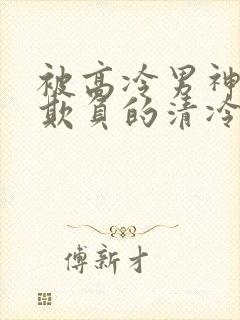 被高冷男神
欺负的清冷
傅新才